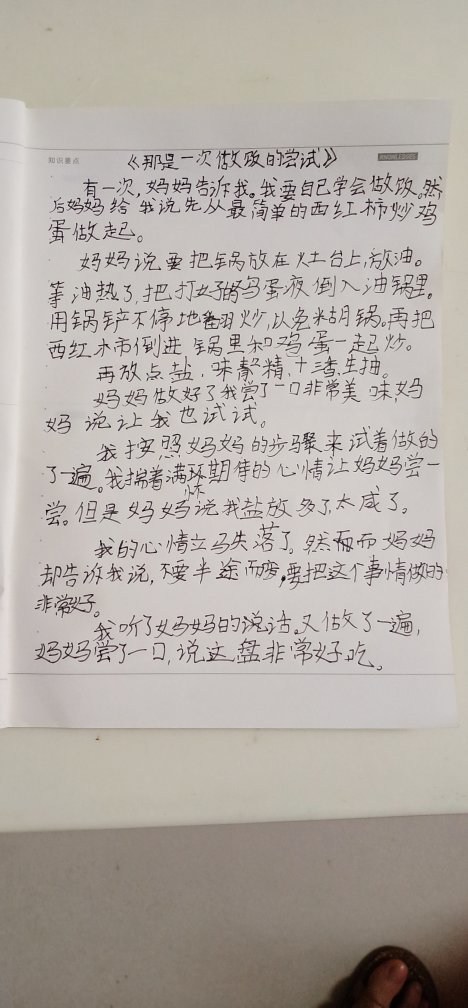 知识要点
KNOWLEDGES
《那是一次做饭的尝试》
有一次,妈妈告诉我。我要自己学会做饭,然
后妈妈给我说先从最简单的西红柿炒鸡
蛋做起。
妈妈说要把锅放在灶台上,放油。
等油热了,把打好的鸡蛋液倒入油锅里。
用锅铲不停地翻炒,以免粘糊锅。再把
西红柿倒进锅里和鸡蛋一起炒。
再放点盐,味精,十三香,生抽。
妈妈做好了我尝了一口非常美味,妈
妈说让我也试试。
我按照妈妈的步骤来试着做的
了一遍。我揣着满怀期待的心情让妈妈尝一
尝。但是妈妈说我盐放多了,太咸了。
我的心情立马失落了。然而妈妈
却告诉我说,不要半途而废,要把这个事情做的
非常好。
我听了妈妈的说话。又做了一遍,
妈妈尝了一口,说这盘非常好吃。